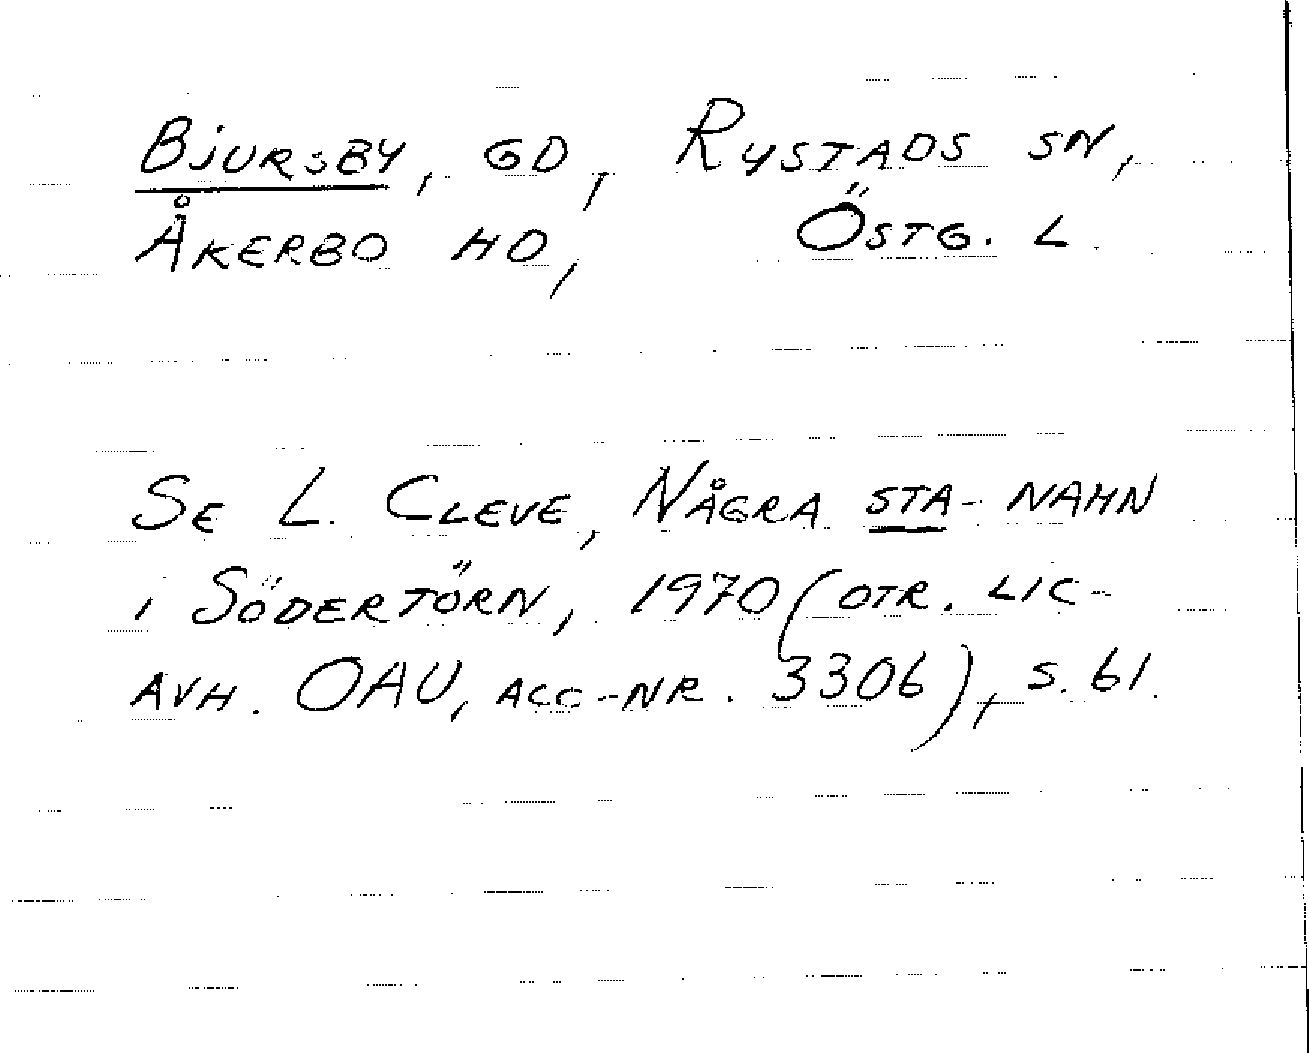 BJURSBY, GD, RYSTADS SN,
ÅKERBO HD, ÖSTG. L.
SE L. CLEVE, NÅGRA STA-NAMN
I SÖDERTÖRN, 1970 (OTR. LIC-
AVH. OAU, ACC-NR. 3306), S. 61.